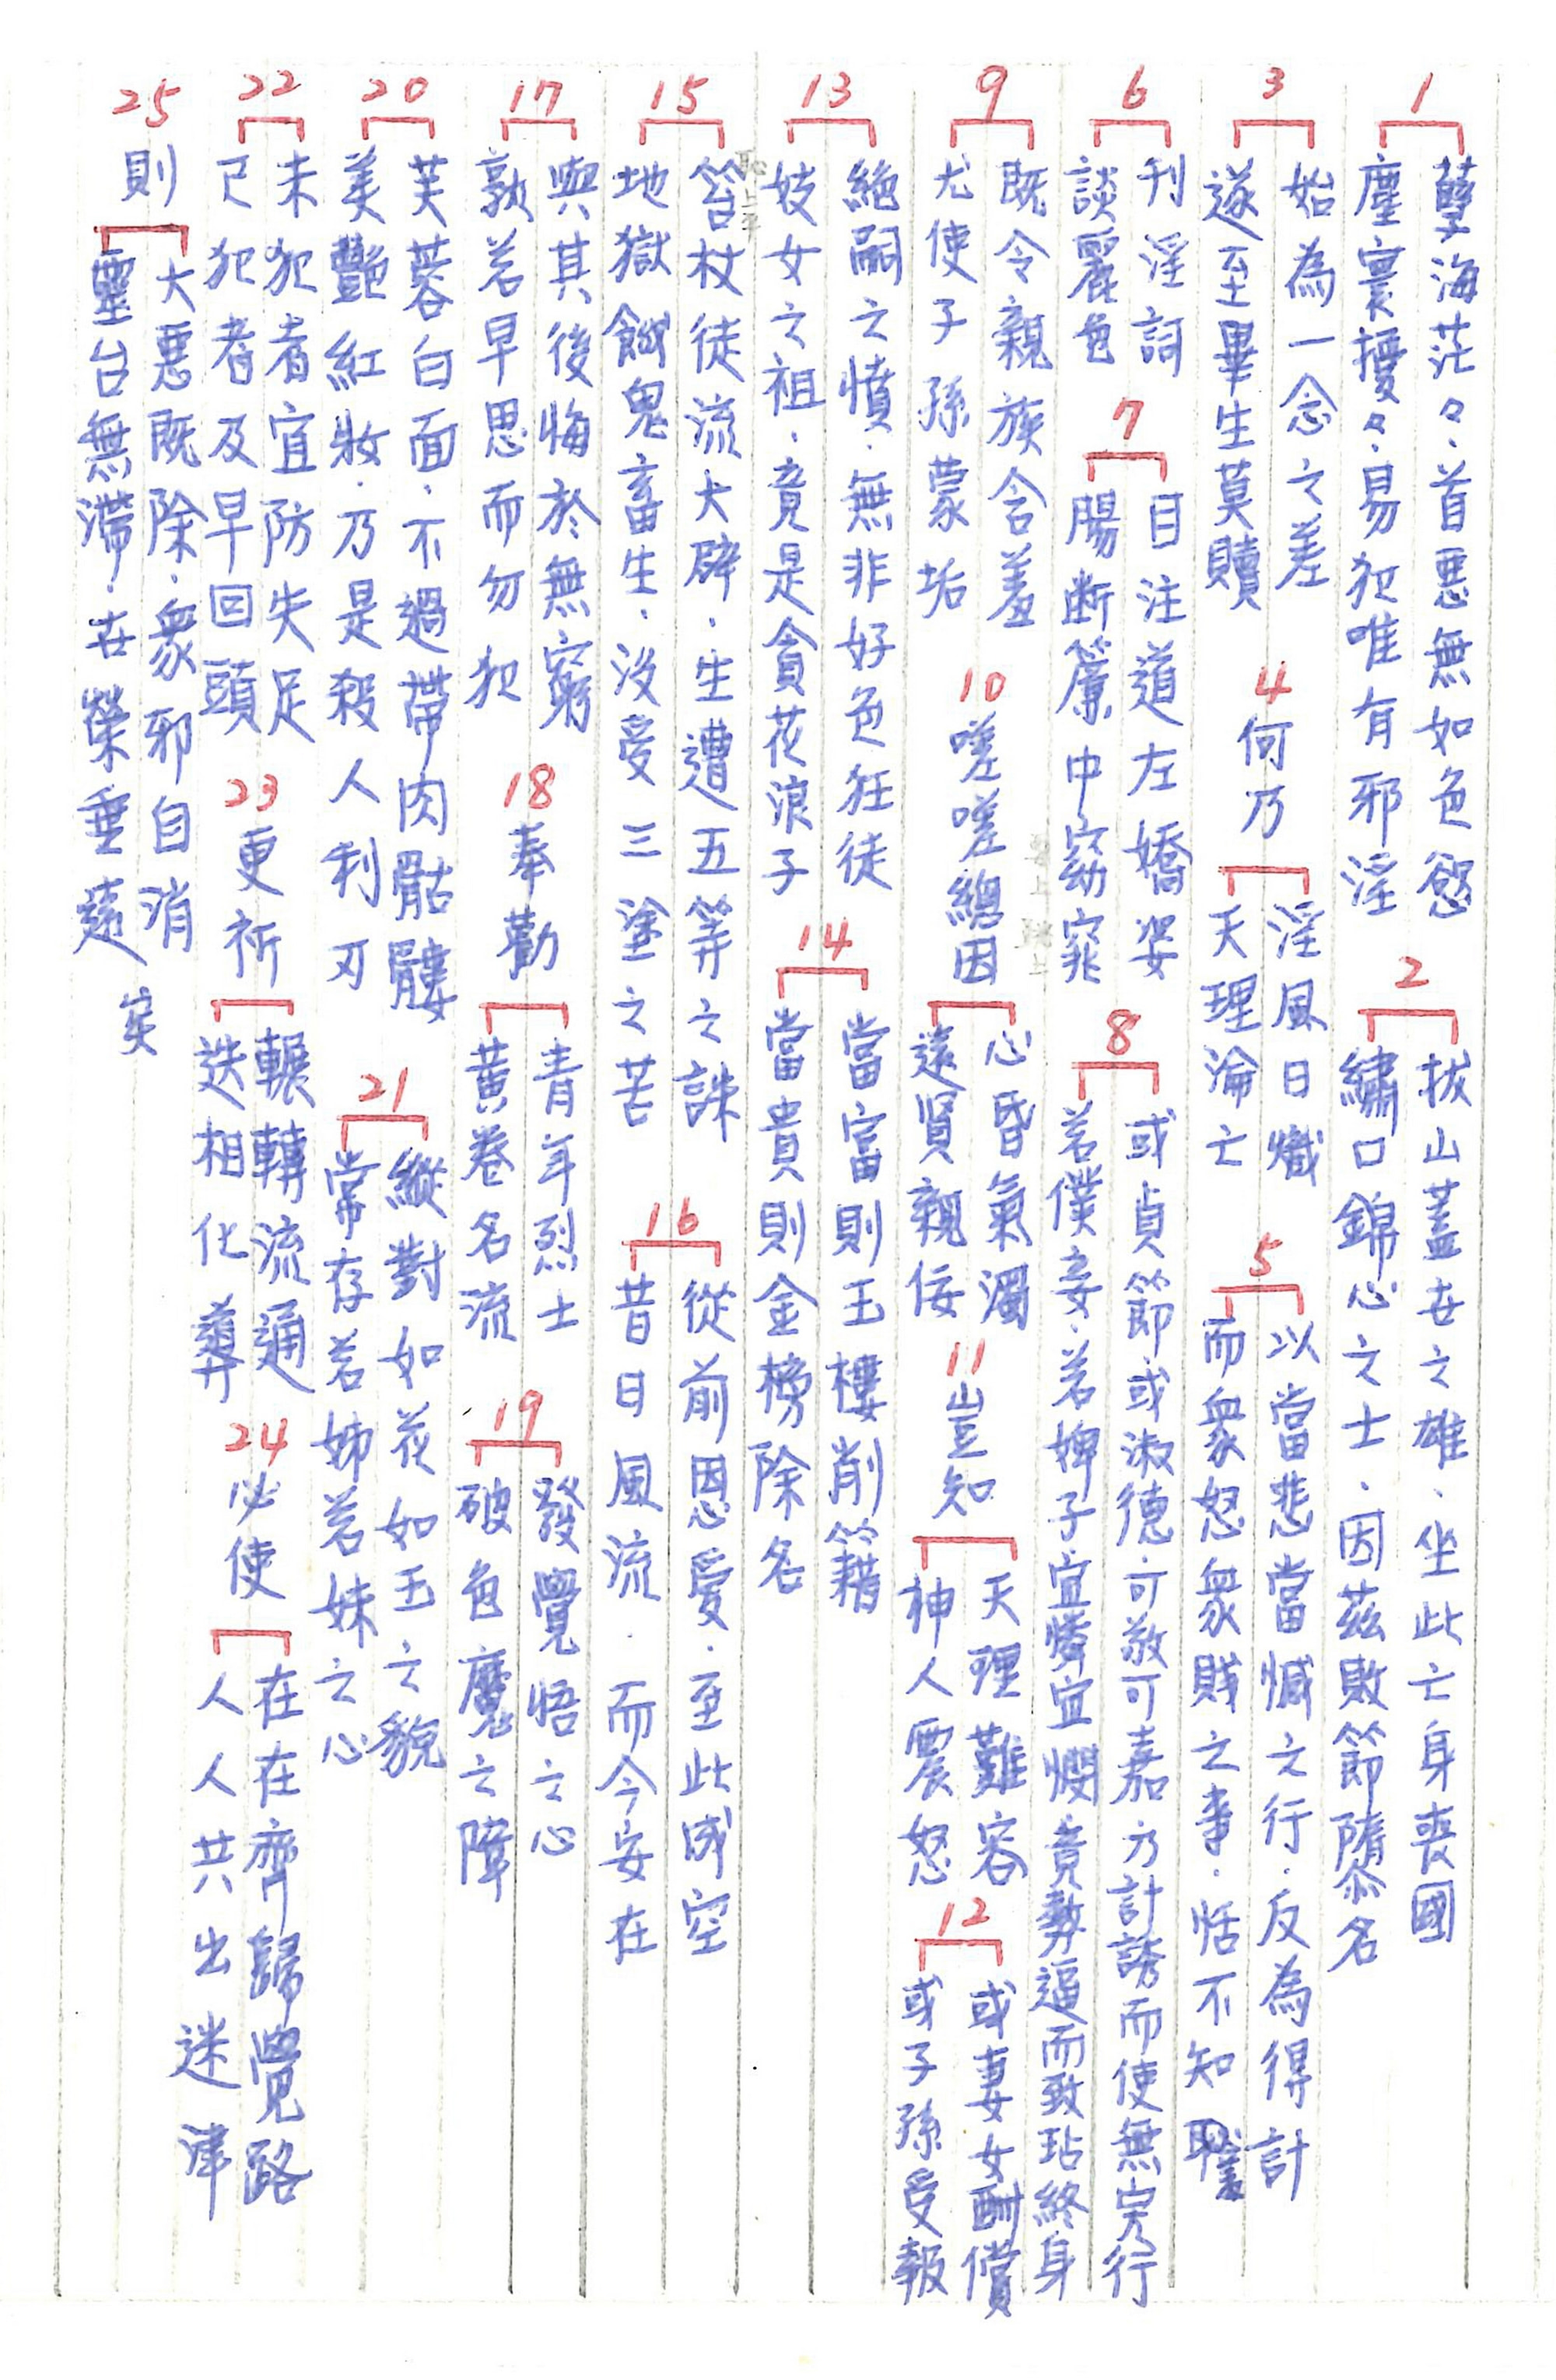 1
孽海茫々．首惡無如色慾
塵寰擾々．易犯唯有邪淫
2
拔山蓋世之雄．坐此亡身喪國
繡口錦心之士．因茲敗節隳名
3
始為一念之差
遂至畢生莫贖
4
何乃
淫風日熾
天理淪亡
5
以當悲當憾之行．反為得計
而眾怒眾賤之事．恬不知羞
6
刊淫詞
談麗色
7
目注道左嬌姿
腸斷簾中窈窕
8
或貞節或淑德可敬可嘉乃計誘而使無完行
若僕妾．若婢子宜憐宜憫竟勢逼而致玷終身
9
既令親族含羞
尤使子孫蒙垢
10
嗟嗟總因
心昏氣濁
遠賢親佞
11
豈知
天理難容
神人震怒
12
或妻女酬償
或子孫受報
13
絕嗣之憤．無非好色狂徒
妓女之祖．竟是貪花浪子
14
當富則玉樓削籍
當貴則金榜除名
15
笞杖徒流大辟．生遭五等之誅
地獄餓鬼畜生．沒受三塗之苦
16
從前恩愛．至此成空
昔日風流．而今安在
17
與其後悔於無窮
孰若早思而勿犯
18
奉勸
青年烈士
黃卷名流
19
發覺悟之心
破色魔之障
20
芙蓉白面．不過帶肉骷髏
美艷紅妝．乃是殺人利刃
21
縱對如花如玉之貌
常存若姊若妹之心
22
未犯者宜防失足
已犯者及早回頭
23
更祈
輾轉流通
迭相化導
24
必使
在在齊歸覺路
人人共出迷津
25
則
大惡既除．眾邪自消
靈台無滯．世榮垂遠
矣